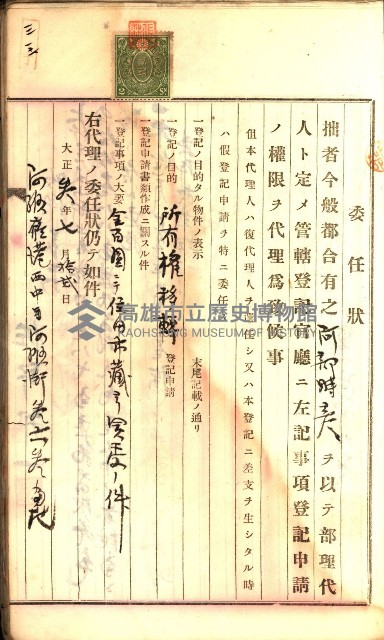 委任狀
拙者今般都合有之阿部時彥ヲ以テ部理代
人ト定メ管轄登記官廳ニ左記事項登記申請
ノ權限ヲ代理爲致候事
但本代理人ハ復代理人ヲ選任シ又ハ本登記ニ差支ヲ生シタル時
ハ假登記申請ヲ特ニ委任
一登記ノ目的タル物件ノ表示 末尾記載ノ通リ
一登記ノ目的 所有權移轉 登記申請
一登記申請書類作成ニ關スル件
一登記事項ノ大要 金百圓ニテ
右代理ノ委任狀仍テ如件
大正 年七月拾貳日
阿猴廳港西中里阿猴街
高雄市立歷史博物館
KAOHSIUNG MUSEUM OF HISTORY